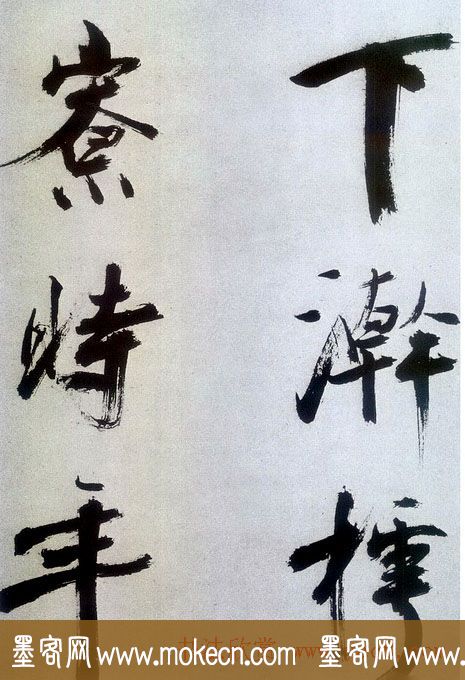 下澣樗
寮時年
墨客网www.mokecn.com 墨客网www.